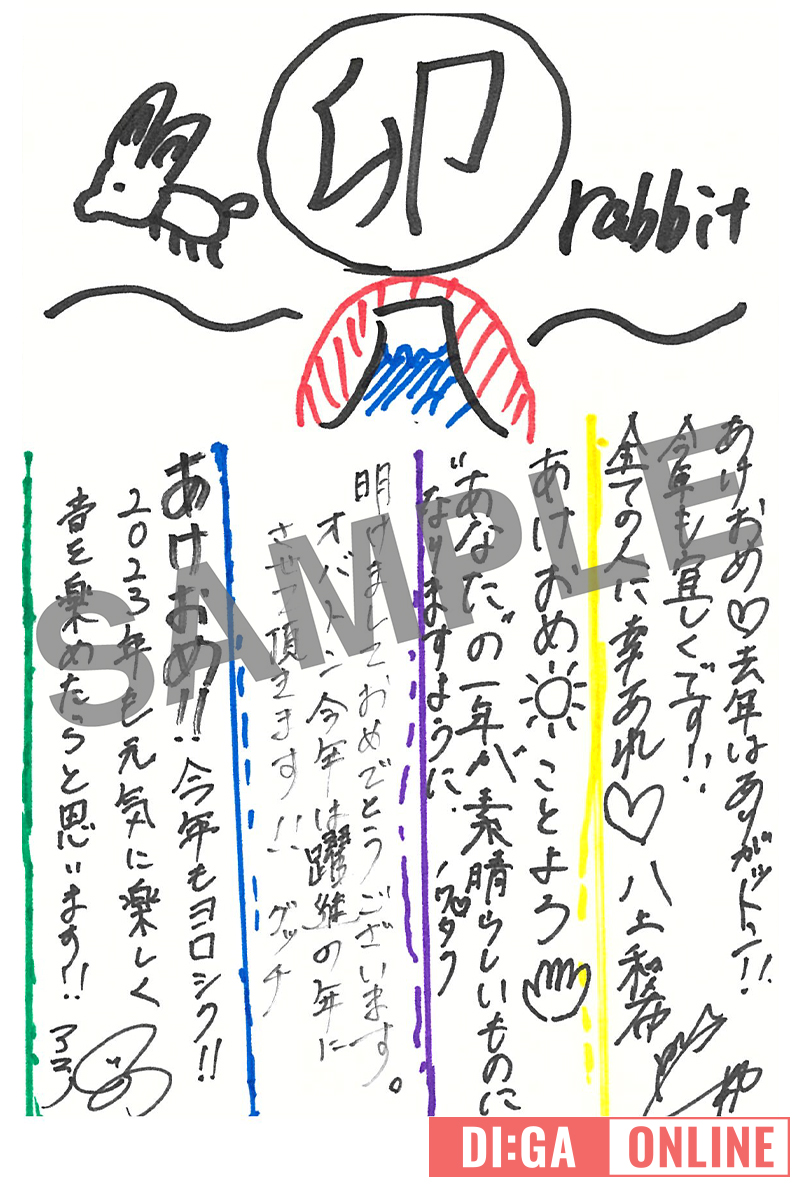 卯
rabbit
あけおめ♡去年はありがットゥ!!
今年も宜しくです!!
全ての人に幸あれ♡ 八上和希
あけおめ ことよろ
"あなた"の一年が素晴らしいものに
なりますように。
明けましておめでとうございます。
オバトン今年は躍進の年に
させて頂きます!! グッチ
あけおめ!! 今年もヨロシク!!
2023年も元気に楽しく
音を楽めたらと思います!!
SAMPLE
DI:GA ONLINE